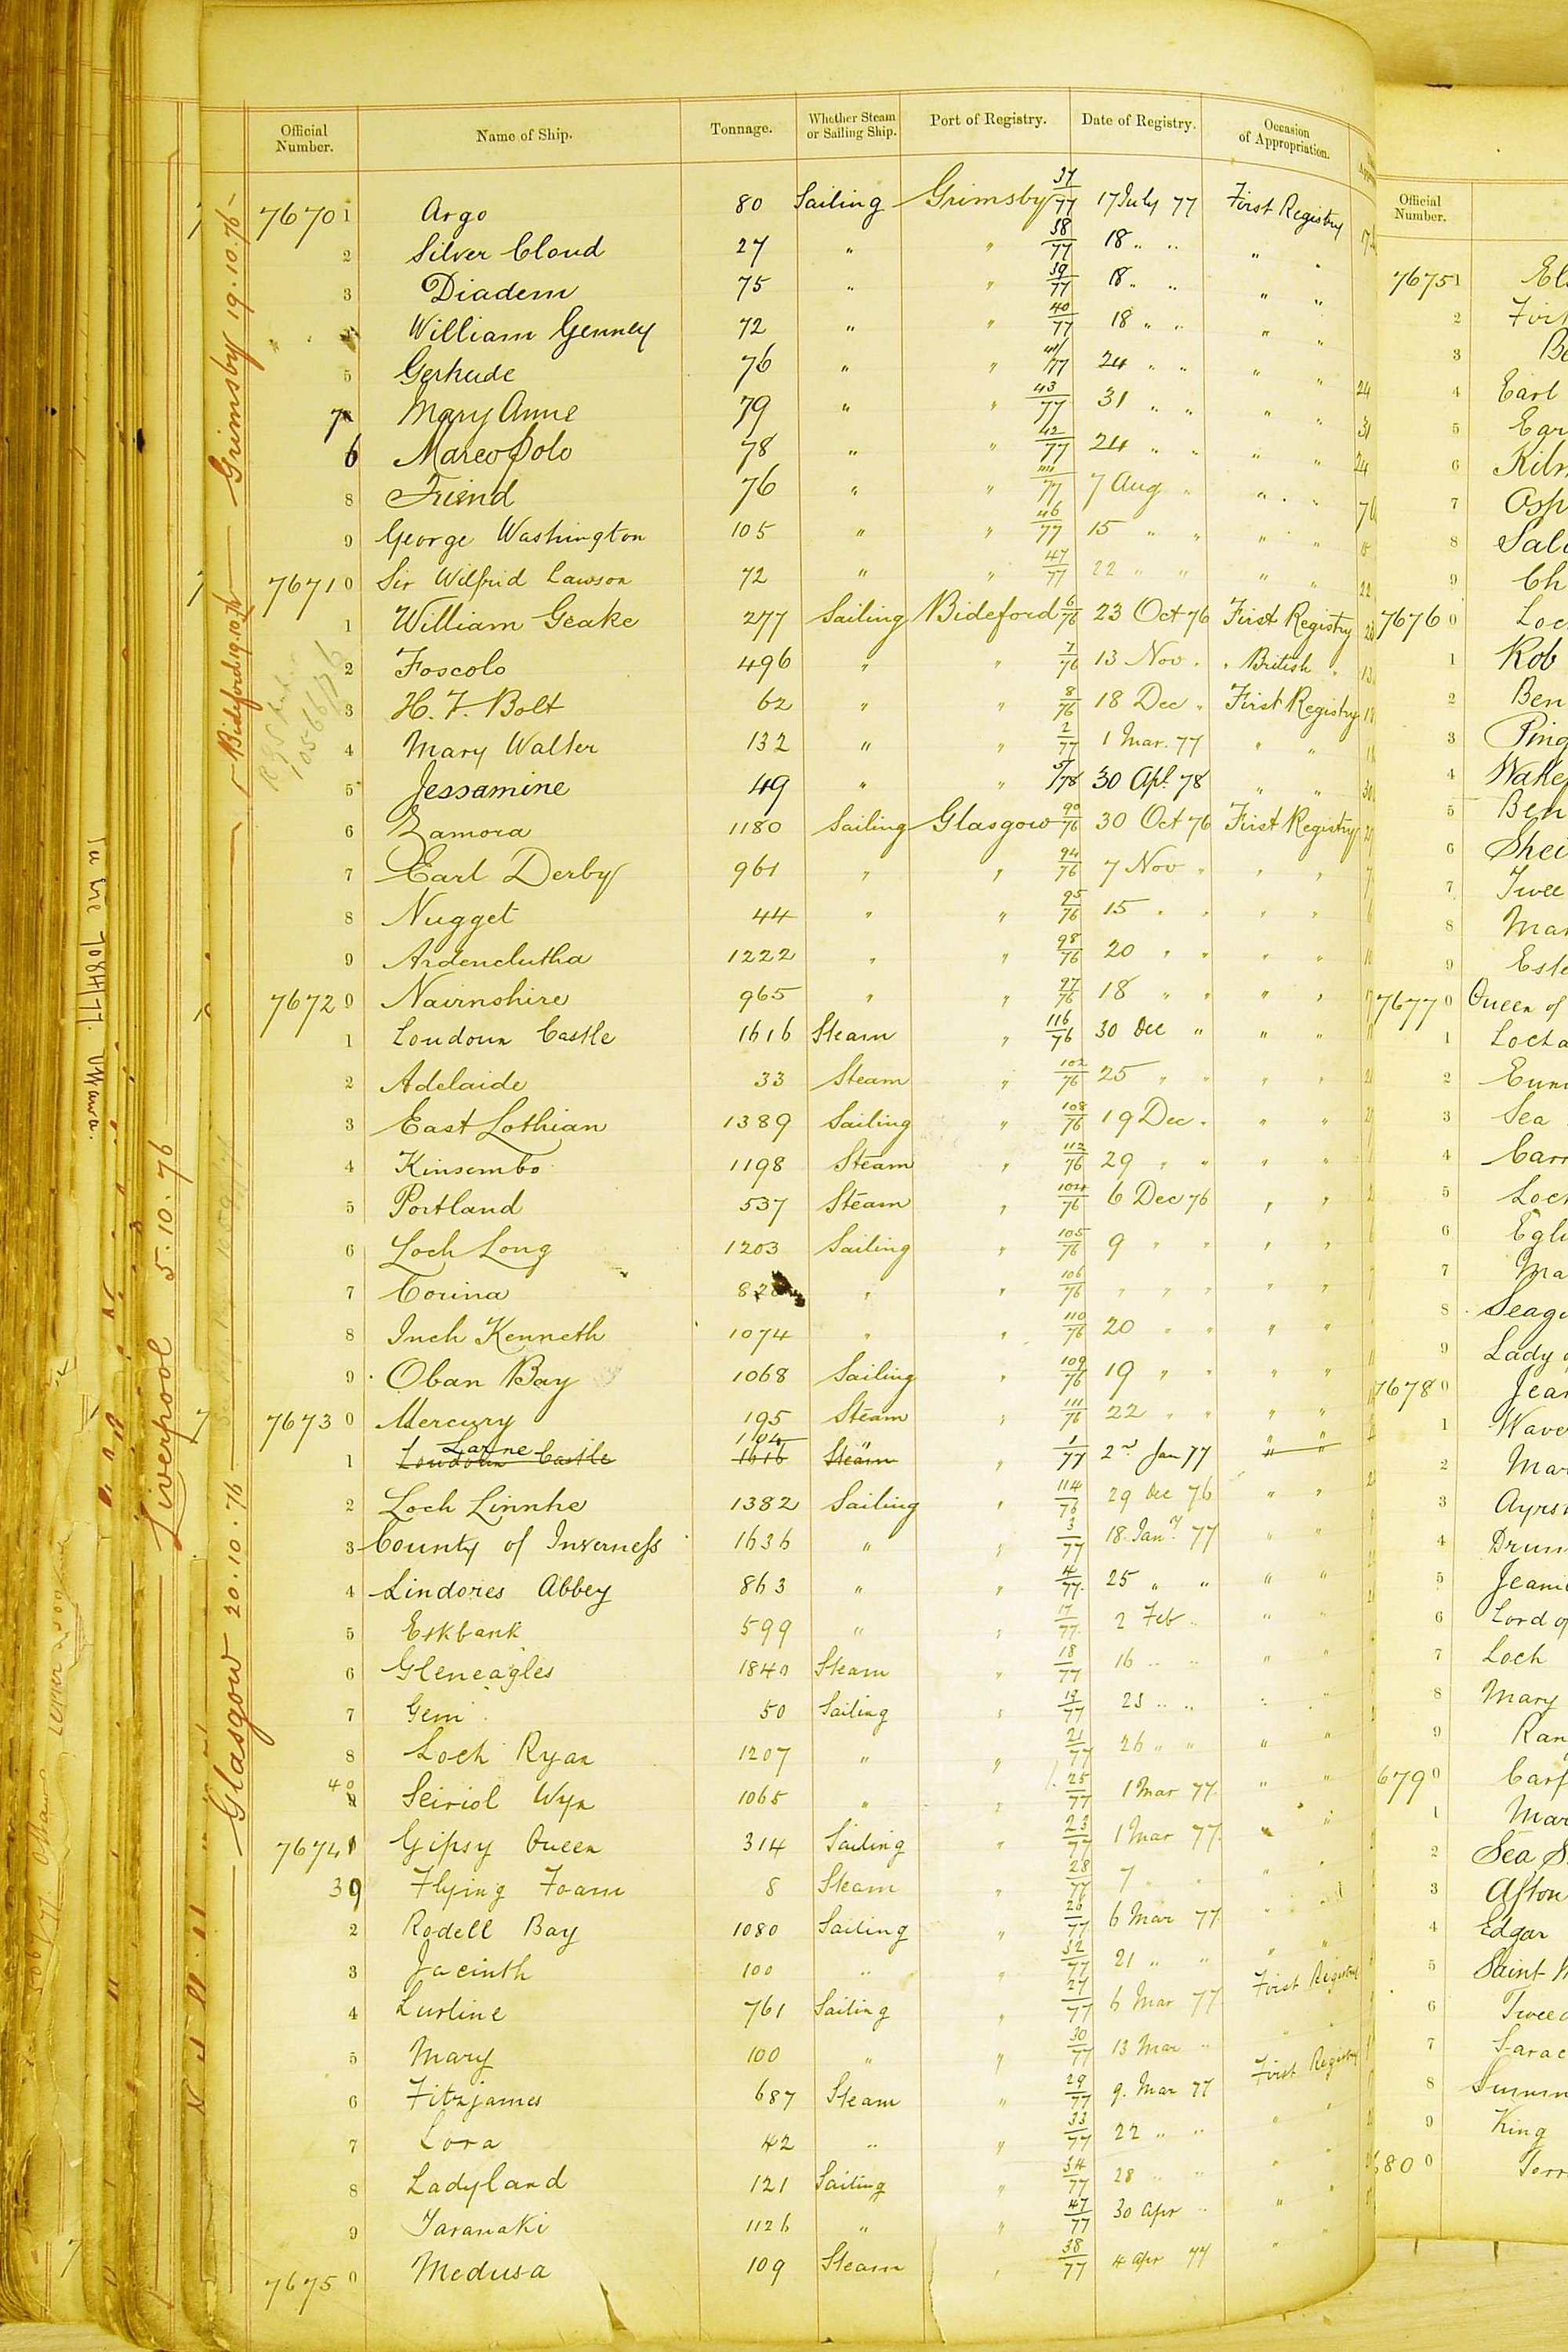 Official Number. Name of Ship. Tonnage. Whether Steam or Sailing Ship. Port of Registry. Date of Registry. Occasion of Appropriation.
76701 Argo 80 Sailing Grimsby 37/77 17 July 77 First Registry
2 Silver Cloud 27 " " 38/77 18 " " " "
3 Diadem 75 " " 39/77 18 " " " "
William Genney 72 " " 40/77 18 " " " "
5 Gertrude 76 " " 41/77 24 " " " "
7 Mary Anne 79 " " 43/77 31 " " " "
6 Marco Polo 78 " " 42/77 24 " " " "
8 Friend 76 " " 44/77 7 Aug " " "
9 George Washington 105 " " 46/77 15 " " " "
76710 Sir Wilfrid Lawson 72 " " 47/77 22 " " " "
1 William Geake 277 Sailing Bideford 6/76 23 Oct 76 First Registry
2 Foscolo 496 " " 7/76 13 Nov " " British "
3 H. F. Bolt 62 " " 8/76 18 Dec " First Registry
4 Mary Walter 132 " " 2/77 1 Mar. 77 " "
5 Jessamine 49 " " 5/78 30 Apl. 78 " "
6 Zamora 1180 Sailing Glasgow 90/76 30 Oct 76 First Registry
7 Earl Derby 961 " " 94/76 7 Nov " " "
8 Nugget 44 " " 95/76 15 " " " "
9 Ardenclutha 1222 " " 98/76 20 " " " "
76720 Nairnshire 965 " " 97/76 18 " " " "
1 Loudoun Castle 1616 Steam " 116/76 30 Dec " " "
2 Adelaide 33 Steam " 102/76 25 " " " "
3 East Lothian 1389 Sailing " 108/76 19 Dec " " "
4 Kinsembo 1198 Steam " 112/76 29 " " " "
5 Portland 537 Steam " 104/76 6 Dec 76 " "
6 Loch Long 1203 Sailing " 105/76 9 " " " "
7 Corina " " 106/76 " " " " "
8 Inch Kenneth 1074 " " 110/76 20 " " " "
9 Oban Bay 1068 Sailing " 109/76 19 " " " "
76730 Mercury 195 Steam " 111/76 22 " " " "
Larne 104 " " "
1 Loudoun Castle 1616 Steam " 1/77 2nd Jan 77 " "
2 Loch Linnhe 1382 Sailing " 114/76 29 Dec 76 " "
3 County of Inverness 1636 " " 3/77 18 Jany 77 " "
4 Lindores Abbey 863 " " 4/77 25 " " " "
5 Eskbank 599 " " 17/77 2 Feb " " "
6 Gleneagles 1840 Steam " 18/77 16 " " " "
7 Gem 50 Sailing " 19/77 23 " " " "
8 Loch Ryan 1207 " " 21/77 26 " " " "
40 Seiriol Wyn 1065 " " 25/77 1 Mar 77 " "
76741 Gipsy Queen 314 Sailing " 23/77 1 Mar 77 " "
39 Flying Foam 8 Steam " 28/77 7 " " " "
2 Rodell Bay 1080 Sailing " 26/77 6 Mar 77 " "
3 Jacinth 100 " " 32/77 21 " " " "
4 Lurline 761 Sailing " 27/77 6 Mar 77 First Registry
5 Mary 100 " " 30/77 13 Mar " " "
6 Fitzjames 687 Steam " 29/77 9. Mar 77 First Registry
7 Lora 42 " " 33/77 22 " " " "
8 Ladyland 121 Sailing " 34/77 28 " " " "
9 Taranaki 1126 " " 47/77 30 Apr " " "
76750 Medusa 109 Steam " 38/77 4 Apr 77 "
Grimsby 19.10.76
Bideford 19.10.76
Glasgow 20.10.76
Liverpool 5.10.76
Official Number.
76751
2
3 Be
4 Earl
5 Ear
6
7
8
9 Ch
76760 Loc
1 Rob
2 Ben
3
4
5 Ben
6
7
8 Mar
9
76770 Queen of
1
2
3 Sea
4
5 Loch
6
7 Ma
8
9 Lady
76780 Jean
1 Wave
2 Mar
3
4
5
6 Lord of
7 Loch
8 Mary
9 Ran
6790
1 Mar
2 Sea S
3 Afton
4 Edgar
5 Saint
6
7
8
9 King
6800